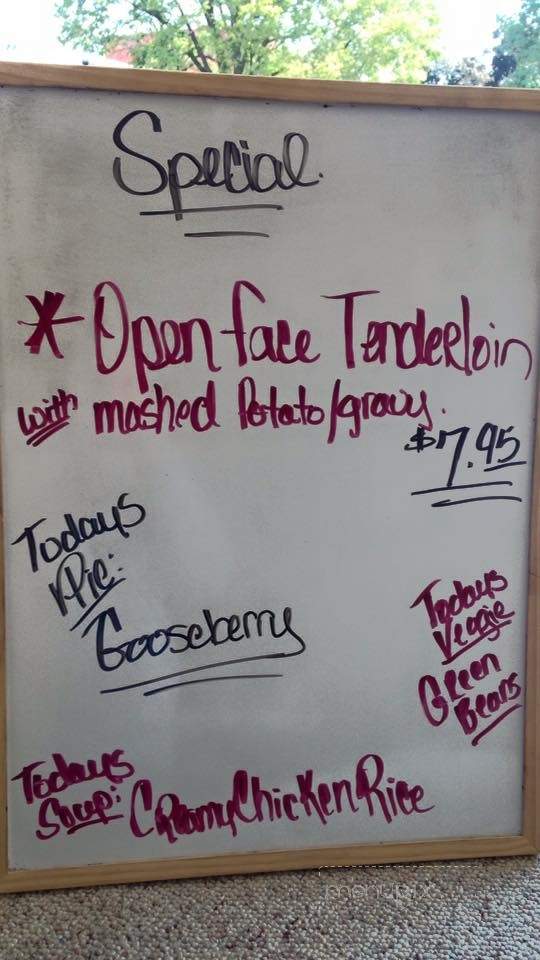 Special.
* Open face Tenderloin
with mashed Potato/gravy.
$7.95
Todays
Pie:
Gooseberry
Todays
Veggie
Green
Beans
Todays
Soup: Creamy Chicken Rice
menupix